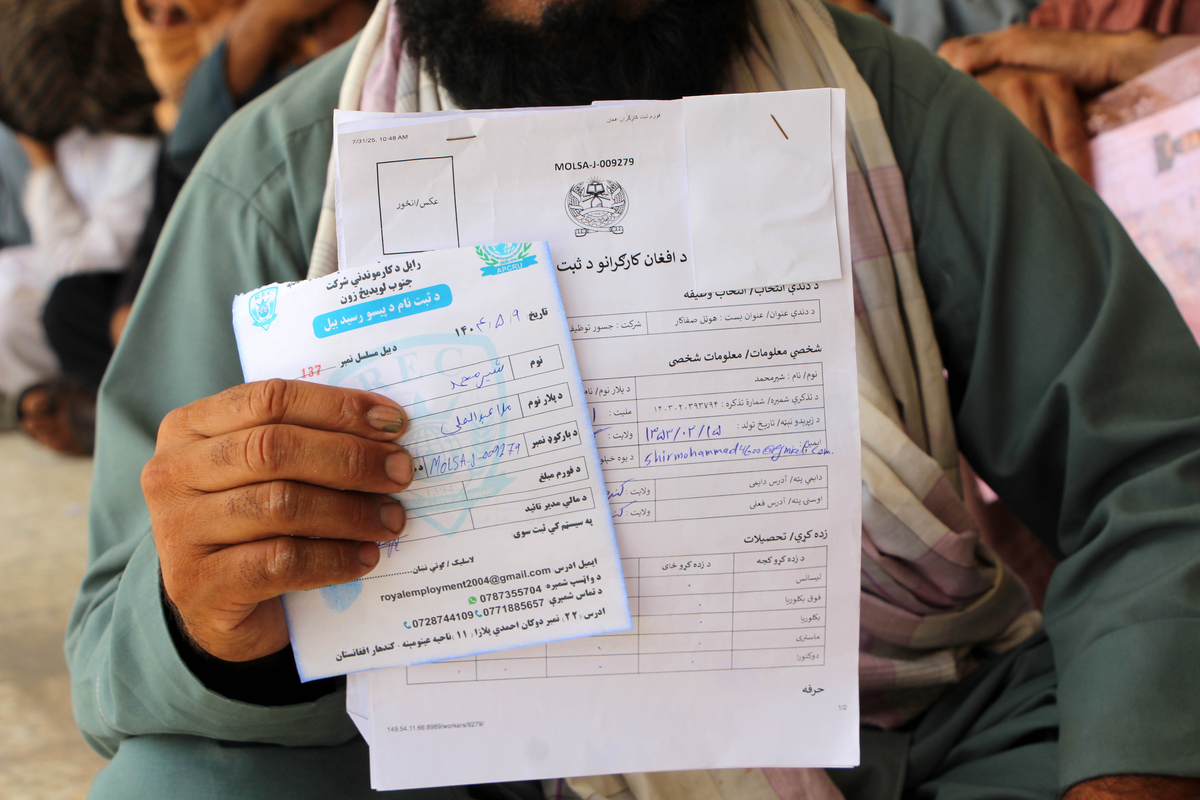 7/31/25, 10:48 AM
فورم ثبت کارگران افغان
MOLSA-J-009279
عکس/انځور
د افغان کارګرانو د ثبت
د دندې انتخاب/ انتخاب وظیفه
د دندې عنوان/ عنوان بست : هوټل صفاکار
شرکت : جسور توظیف
شخصي معلومات/ معلومات شخصی
نوم/ نام : شیرمحمد
د پلار نوم/ نام
د تذکرې شمېره/ شمارهٔ تذکره : ۱۴۰۳۰۲۰۳۹۳۷۹۴
ملیت :
د زیږېدو نېټه/ تاریخ تولد : ۱۳۵۳/۰۲/۱۵
ولایت :
shirmohammad4600@gmail.com
دایمي پته/ آدرس دایمی
ولایت :
اوسنۍ پته/ آدرس فعلی
ولایت :
زده کړې/ تحصیلات
د زده کړو کچه
د زده کړو ځای
لیسانس
فوق بکلوریا
بکلوریا
ماستری
دوکتورا
حرفه
1/2
149.54.11.66:8989/workers/9279/
APCRU
رایل د کارموندنې شرکت
جنوب لویدیځ زون
د ثبت نام د پیسو رسید بیل
تاریخ ۱۴۰۴،۵،۹
د بیل مسلسل نمبر 137
REC
نوم شیرمحمد
د پلار نوم ملا عبدالعلي
د بارکوډ نمبر MOLSA-J-009279
د فورم مبلغ
د مالي مدیر تائید
په سیسټم کې ثبت سوی
لاسلیک / ګوتې نښان
ایمیل ادرس royalemployment2004@gmail.com
د واټسپ شمېره 0787355704
د تماس شمېرې 0771885657 0728744109
ادرس ،۲۲، نمبر دوکان احمدي پلازا، ۱۱ ناحیه عینومېنه - کندهار افغانستان